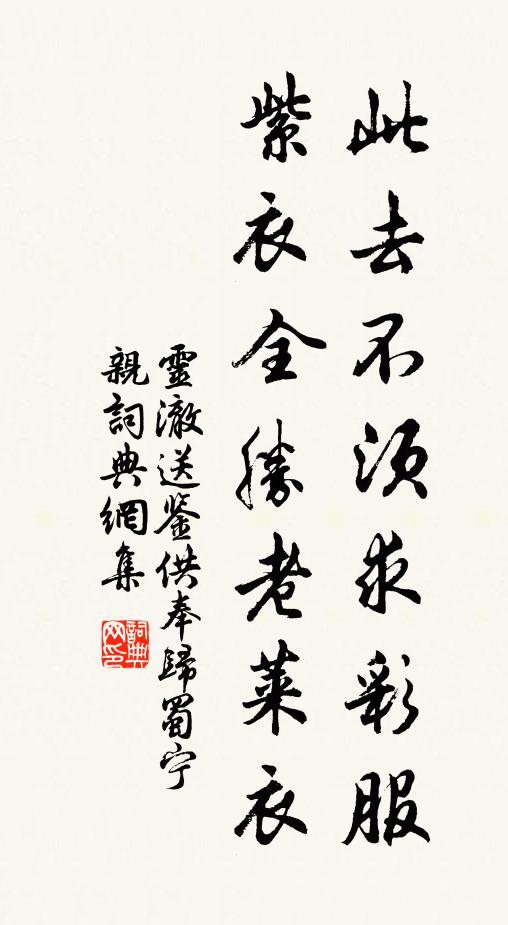 此去不須求彩服
紫衣全勝老萊衣
靈澈送鉴供奉歸蜀宁
親詞典網集
詞典网印